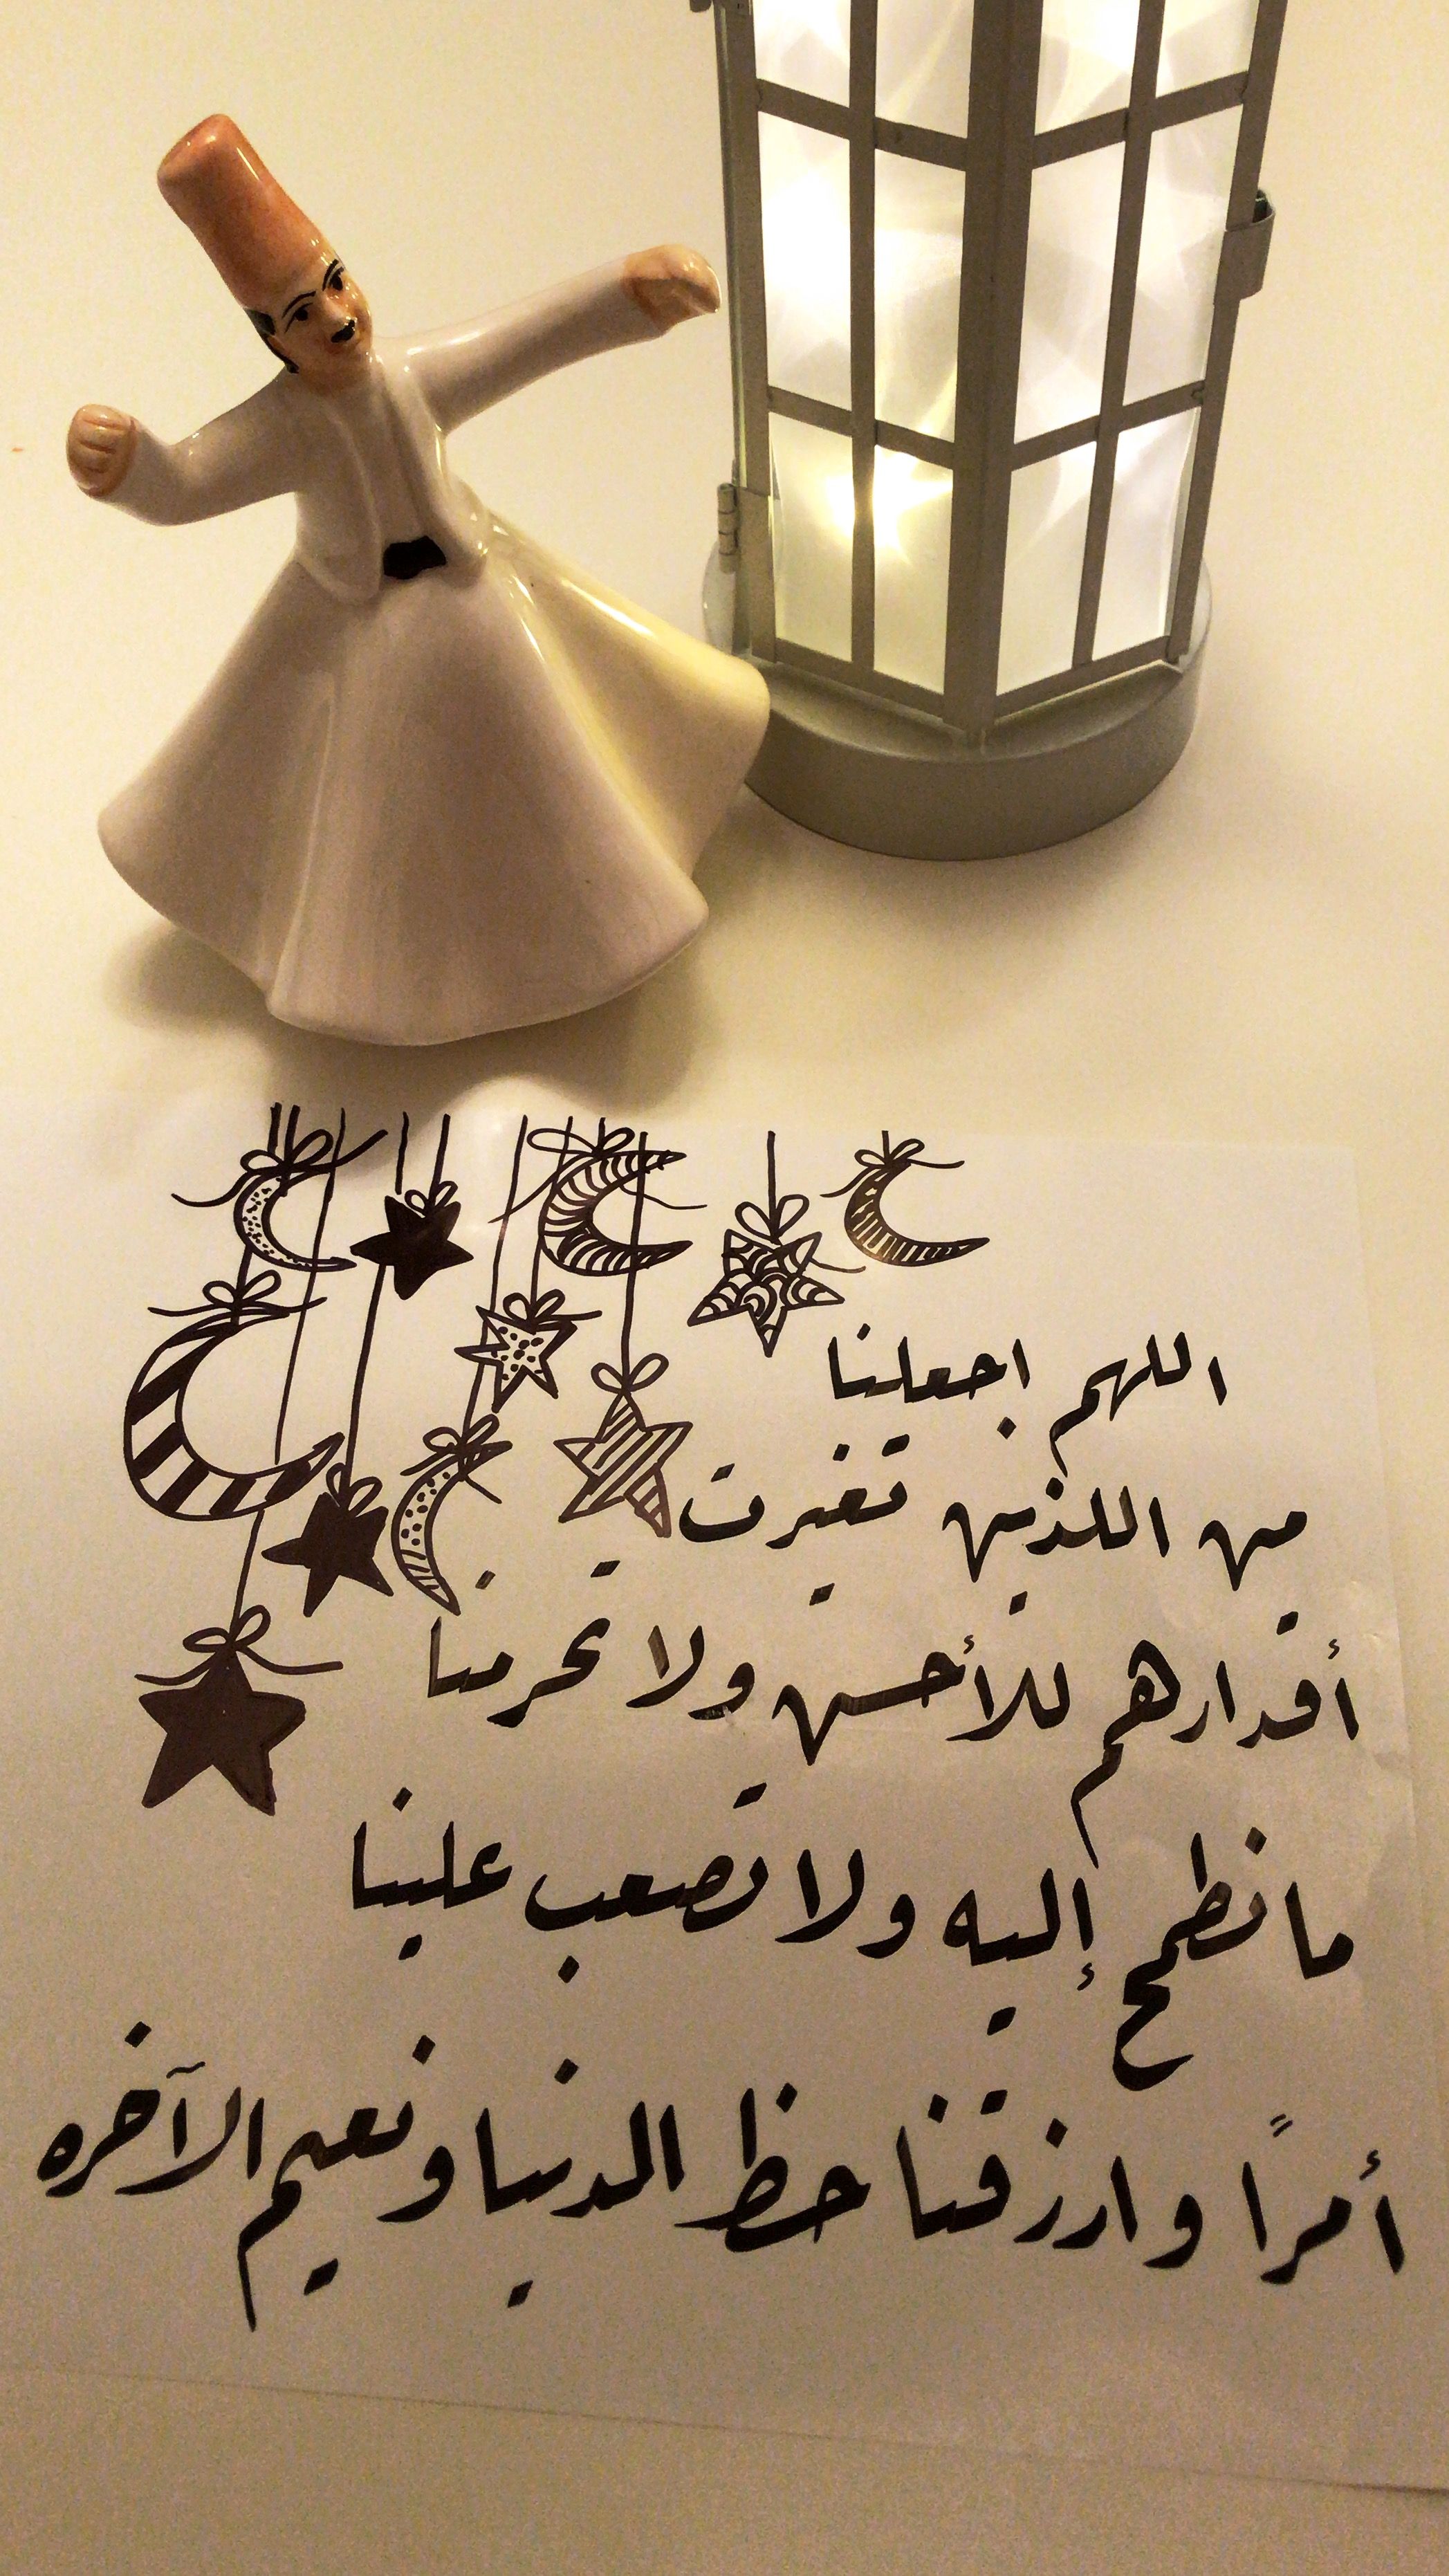 اللهم اجعلنا
من اللذين تغيرت
أقدارهم للأحسن ولا تحرمنا
ما نطمح إليه ولا تصعب علينا
أمرًا وارزقنا حظ الدنيا ونعيم الآخره